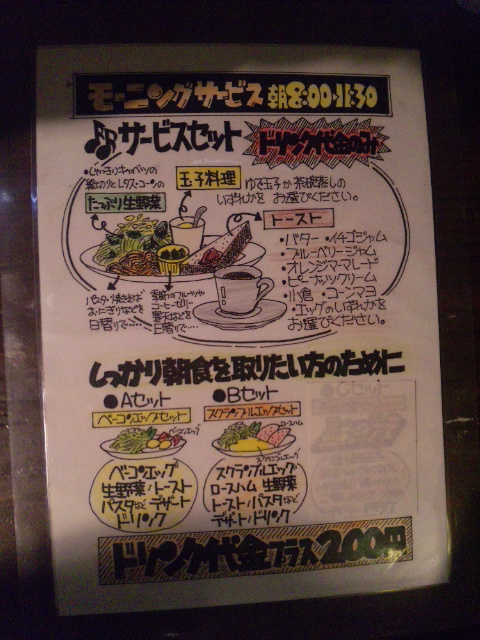 モーニングサービス 朝8:00-11:30
サービスセット
ドリンク代金のみ
・しゃきしゃきキャベツの
細切りとレタス・コーンの
たっぷり生野菜
玉子料理
ゆで玉子か茶碗蒸しの
いずれかをお選びください。
トースト
・バター ・イチゴジャム
・ブルーベリージャム
・オレンジマーマレード
・ピーナッツクリーム
・小倉 ・コーンマヨ
・エッグのいずれかを
お選びください。
パスタ・焼きそば
おにぎりなどを
日替りで……
季節のフルーツや
コーヒーゼリー
寒天などを
日替りで…
しっかり朝食を取りたい方のために
●Aセット
ベーコンエッグセット
ベーコンエッグ
ベーコンエッグ
生野菜・トースト
パスタなど デザート
ドリンク
●Bセット
スクランブルエッグセット
ロースハム
スクランブルエッグ
スクランブルエッグ
ロースハム 生野菜
トースト・パスタなど
デザート・ドリンク
ドリンク代金プラス200円